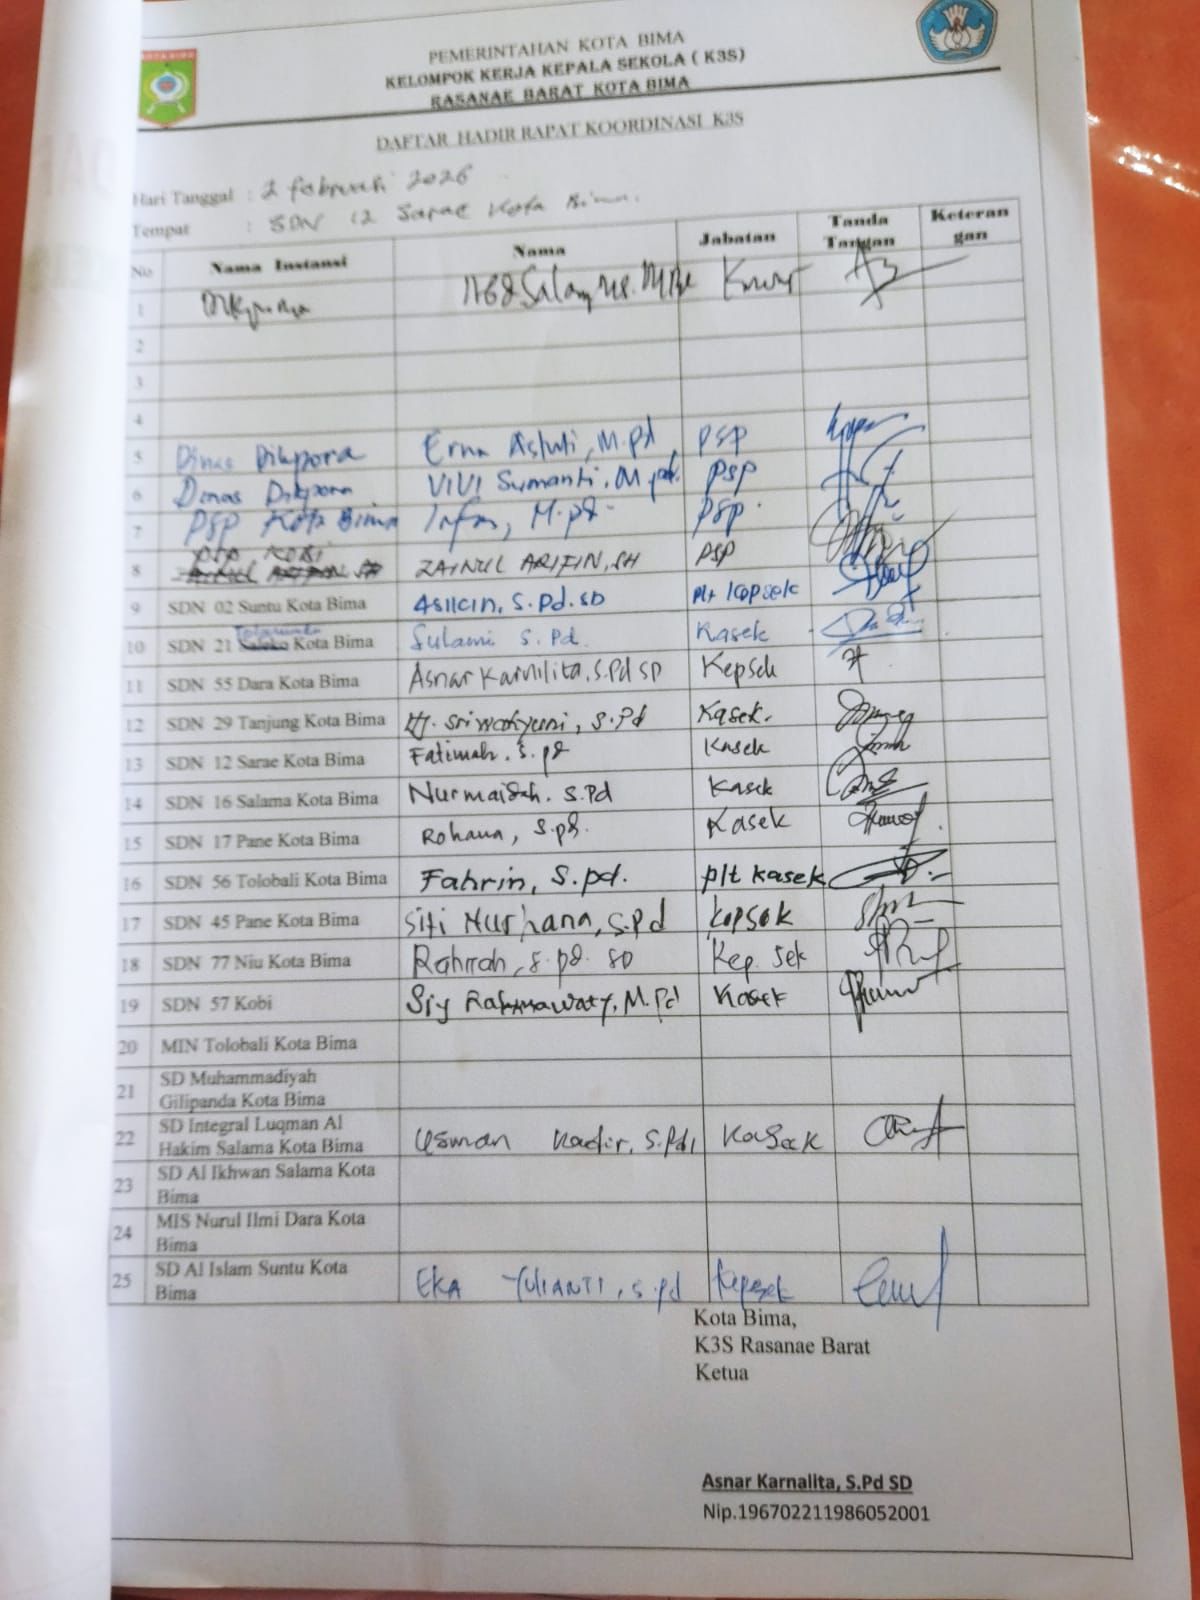 KOTA BIMA
PEMERINTAHAN KOTA BIMA
KELOMPOK KERJA KEPALA SEKOLA ( K3S)
RASANAE BARAT KOTA BIMA
DAFTAR HADIR RAPAT KOORDINASI K3S
Hari Tanggal : 2 februari 2026
Tempat : SDN 12 Sarae Kota Bima.
No Nama Instansi Nama Jabatan Tanda Tangan Keteran gan
1
2
3
4
5 Dinas Dikpora Erna Astuti, M.Pd PSP
6 Dinas Dikpora VIVI Sumanti, M.pd. PSP
7 PSP Kota Bima M.pd. PSP
8 PSP KOBI ZAINUL ARIFIN, SH PSP
9 SDN 02 Suntu Kota Bima Asikin, S.Pd.SD plt kepsek
10 SDN 21 Kota Bima Sulami S.Pd. Kasek
11 SDN 55 Dara Kota Bima Asnar Karnilita, S.Pd SD Kepsek
12 SDN 29 Tanjung Kota Bima Hj. Sriwahyuni, S.Pd Kasek.
13 SDN 12 Sarae Kota Bima Fatimah. S.pd Kasek
14 SDN 16 Salama Kota Bima Nurmaidah. S.Pd Kasek
15 SDN 17 Pane Kota Bima Rohana, S.pd. Kasek
16 SDN 56 Tolobali Kota Bima Fahrin, S.pd. plt kasek
17 SDN 45 Pane Kota Bima Siti Nurhana, S.Pd kepsek
18 SDN 77 Niu Kota Bima S.pd. SD Kep. Sek
19 SDN 57 Kobi Rahmawaty, M.Pd Kasek
20 MIN Tolobali Kota Bima
21 SD Muhammadiyah
Gilipanda Kota Bima
22 SD Integral Luqman Al
Hakim Salama Kota Bima Usman Kadir, S.PdI Kasek
23 SD Al Ikhwan Salama Kota
Bima
24 MIS Nurul Ilmi Dara Kota
Bima
25 SD Al Islam Suntu Kota
Bima EKA YULIANTI, S.pd Kepsek
Kota Bima,
K3S Rasanae Barat
Ketua
Asnar Karnalita, S.Pd SD
Nip.196702211986052001